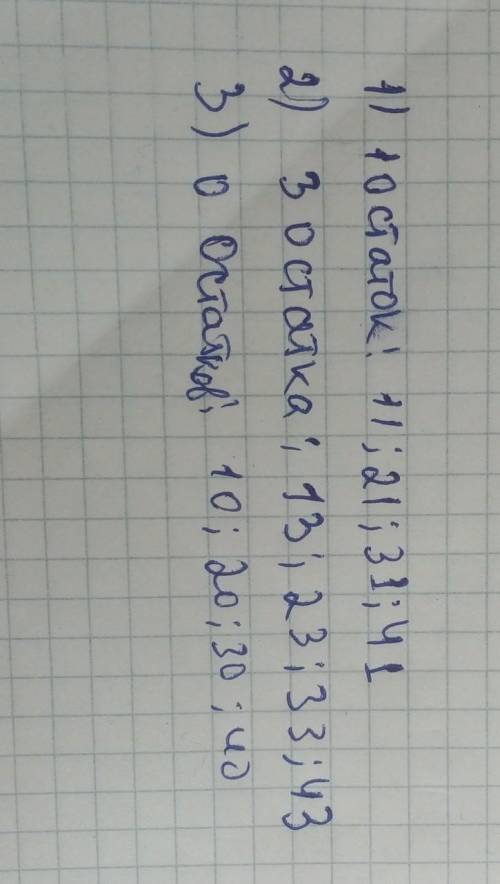 1) 1 остаток: 11; 21; 31; 41
2) 3 остатка; 13; 23; 33; 43
3) 0 остатков; 10; 20; 30; 40